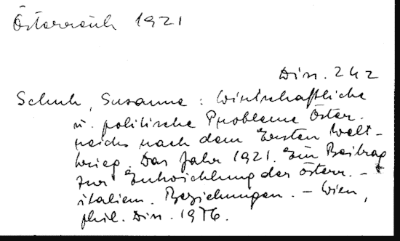 Österreich 1921
Diss. 242
Schuh, Susanne: Wirtschaftliche
u. politische Probleme Öster-
reichs nach dem Ersten Welt-
krieg. Das Jahr 1921. Ein Beitrag
zur Entwicklung der österr. -
italien. Beziehungen. - Wien,
phil. Diss. 1976.